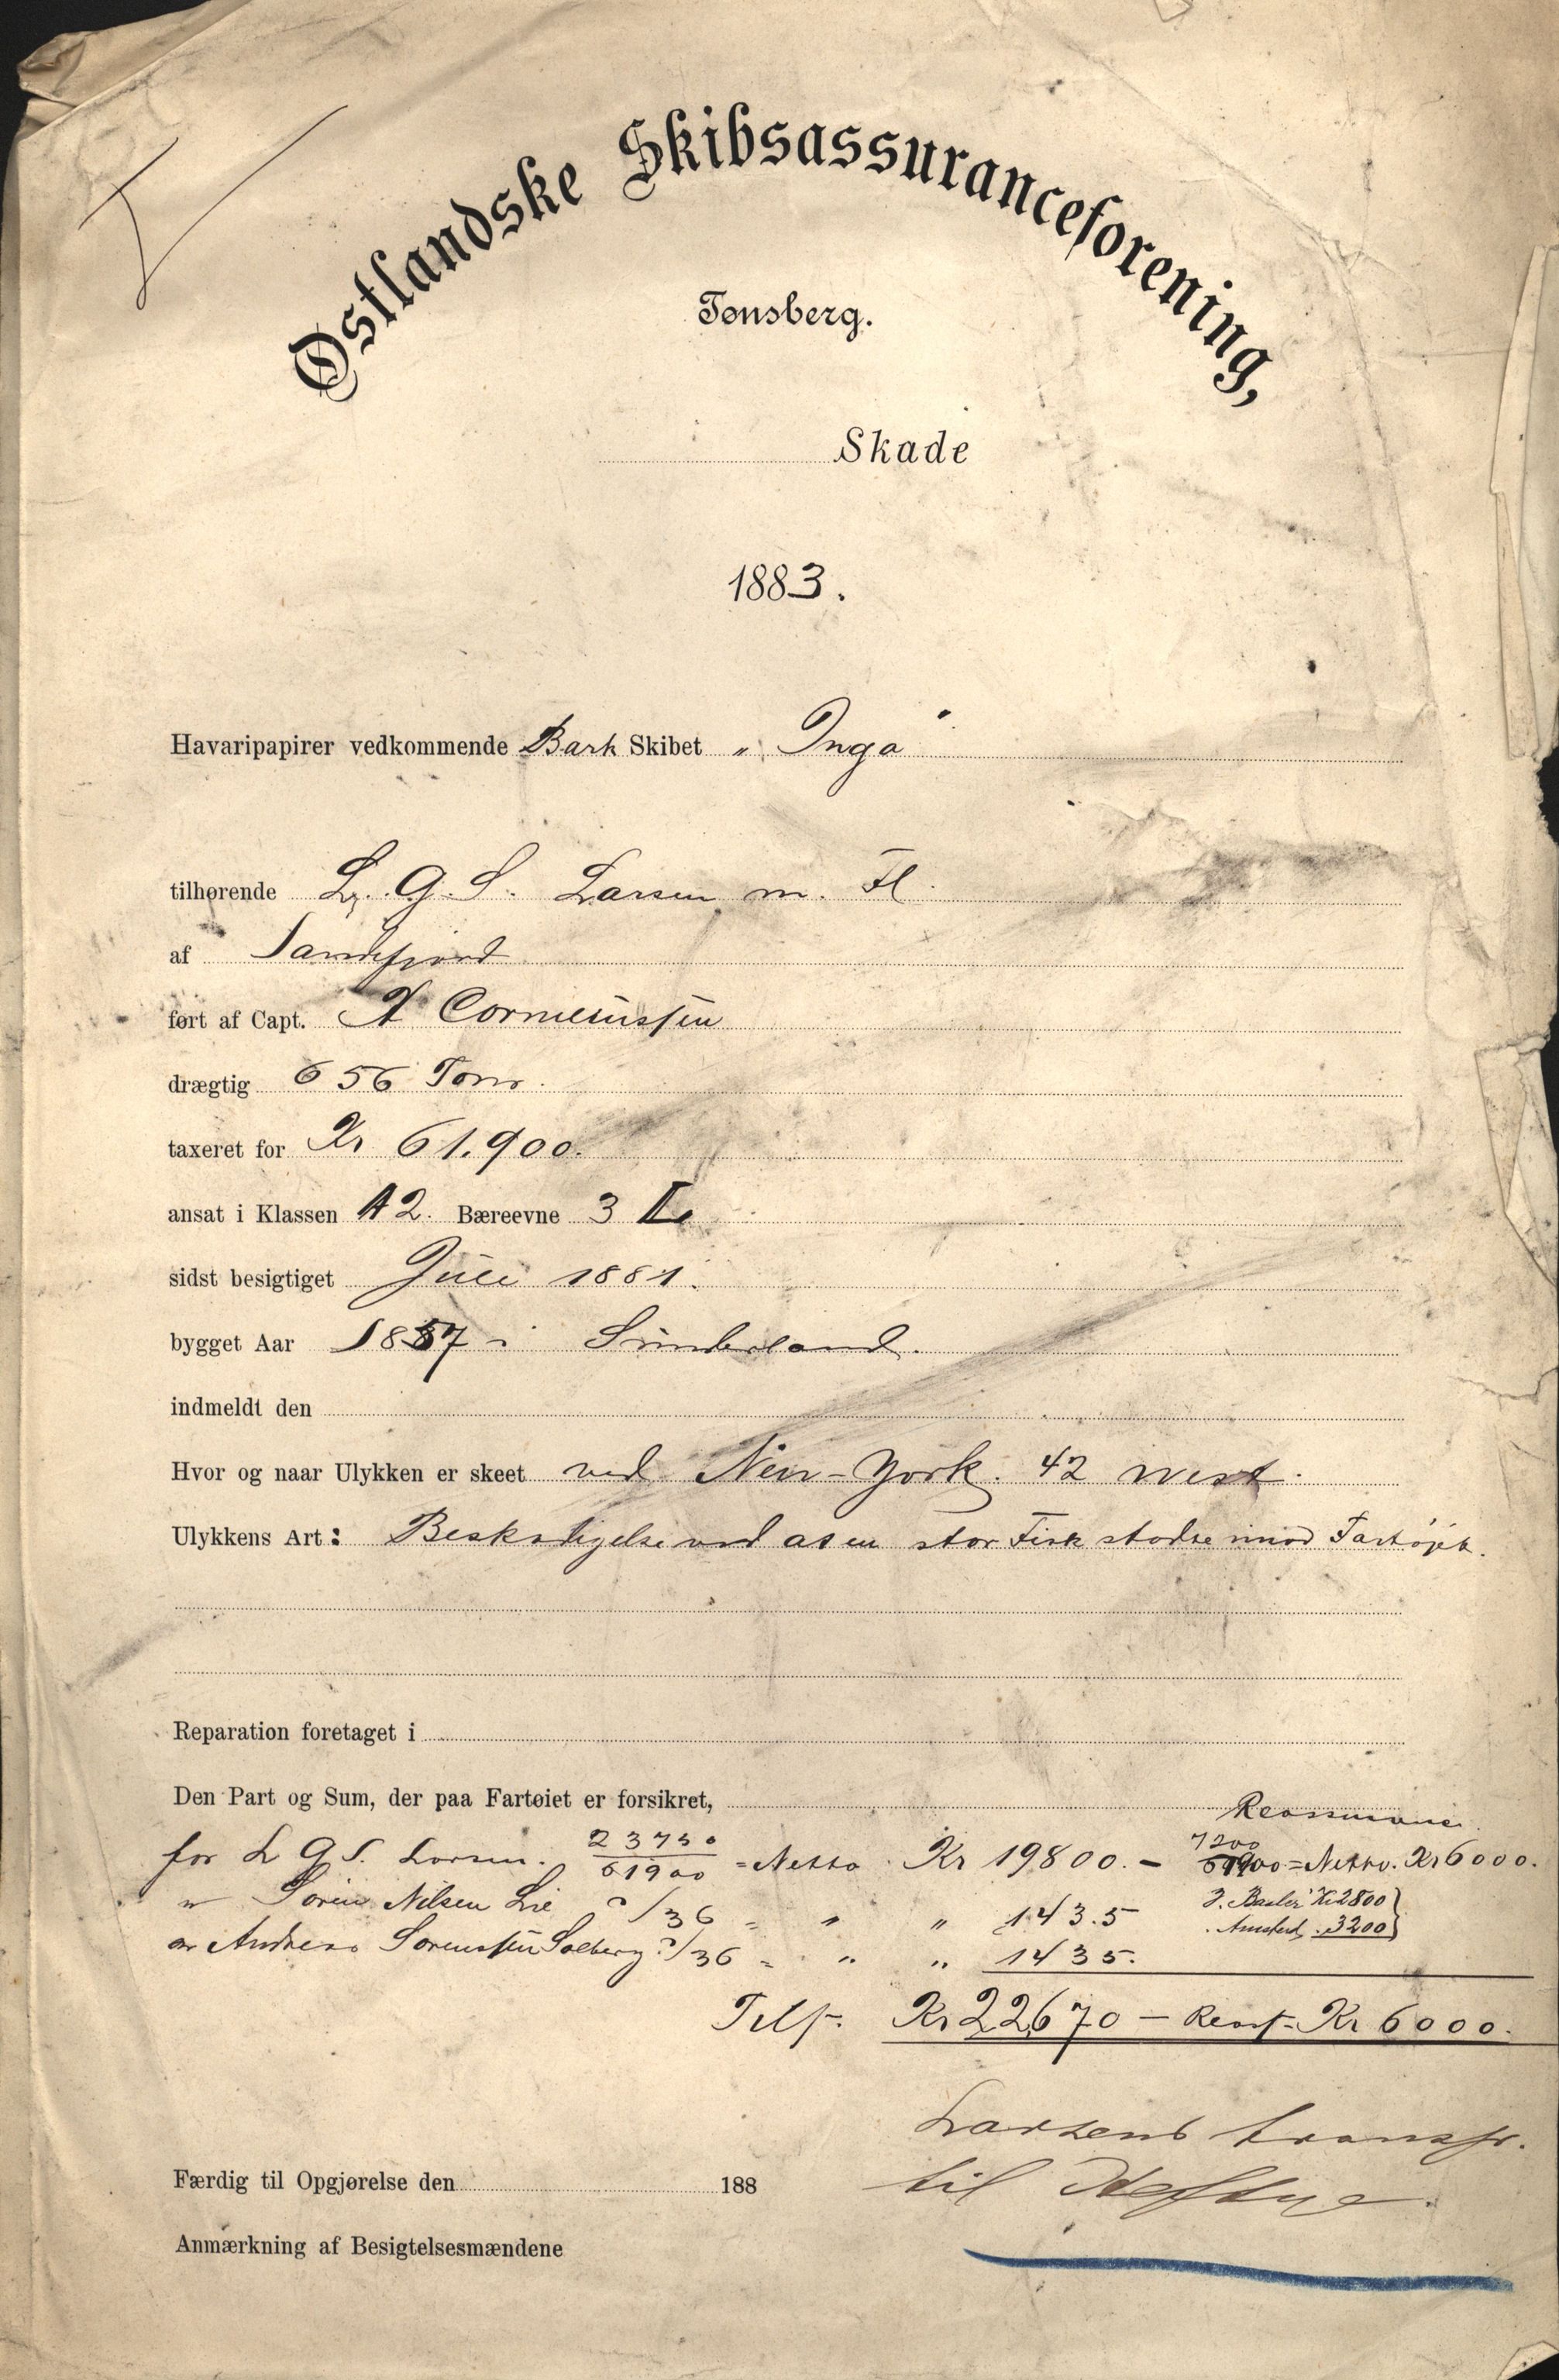 Østlandske Skibsassuranceforening,
Tønsberg.
Skade
1883.
Havaripapirer vedkommende Bark Skibet „Inga"
tilhørende L. G. S. Larsen m. Fl.
af Sandefjord
ført af Capt. A Corneliussen
drægtig 656 Tons.
taxeret for Kr 61.900.
ansat i Klassen A2. Bæreevne 3 I
sidst besigtiget Juli 1881.
bygget Aar 1857 i Sunderland.
indmeldt den
Hvor og naar Ulykken er skeet ved New-York. 42 west.
Ulykkens Art: Beskadigelse ved at en stor Fisk stødte imod Fartøjet.
Reparation foretaget i
Den Part og Sum, der paa Fartøiet er forsikret,
Reassurance.
for L G S. Larsen. 23750/61900 = Netto Kr 19800. – 7200/61900 = Netto. Kr 6000.
" Søren Nilsen Lie /36 = " " 1435 J. Basler Kr 2800
" Andreas Sørenssen Solberg /36 = " " 1435. Amsterd. 3200
Tils. Kr 22670 – Reass. Kr 6000.
Larsens transp.
til Heftye.
Færdig til Opgjørelse den 188
Anmærkning af Besigtelsesmændene